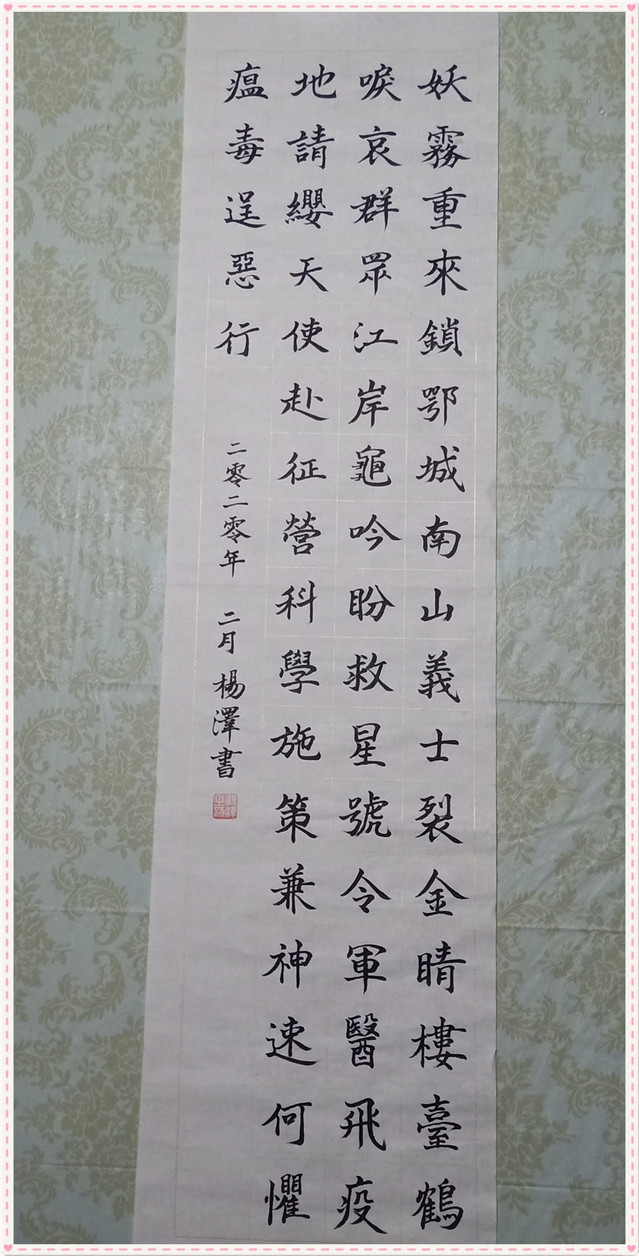 妖霧重來鎖鄂城南山義士裂金睛樓臺鶴
唳哀群眾江岸龜吟盼救星號令軍醫飛疫
地請纓天使赴征營科學施策兼神速何懼
瘟毒逞惡行
二零二零年 二月 楊澤書